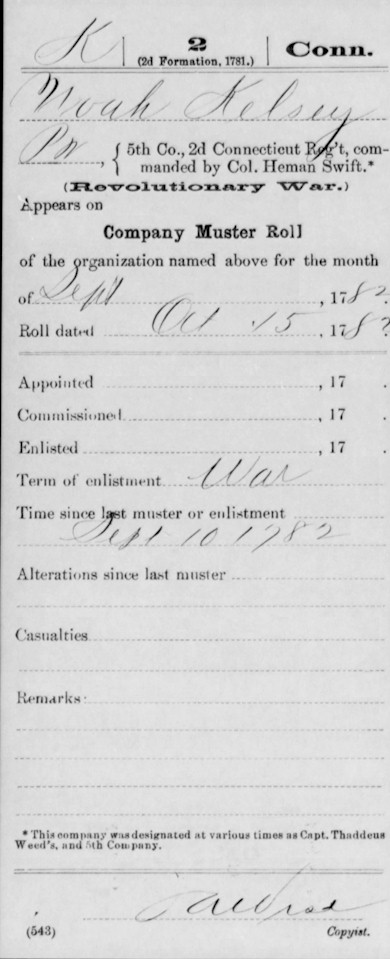 K | 2 | Conn.
(2d Formation, 1781.)
Noah Kelsey
Pvt, { 5th Co., 2d Connecticut Reg't, com-
manded by Col. Heman Swift.*
(Revolutionary War.)
Appears on
Company Muster Roll
of the organization named above for the month
of Sept, 1782.
Roll dated Oct 15, 1782.
Appointed , 17 .
Commissioned , 17 .
Enlisted , 17 .
Term of enlistment War
Time since last muster or enlistment
Sept 10 1782
Alterations since last muster
Casualties
Remarks:
* This company was designated at various times as Capt. Thaddeus
Weed's, and 5th Company.
(543) Copyist.